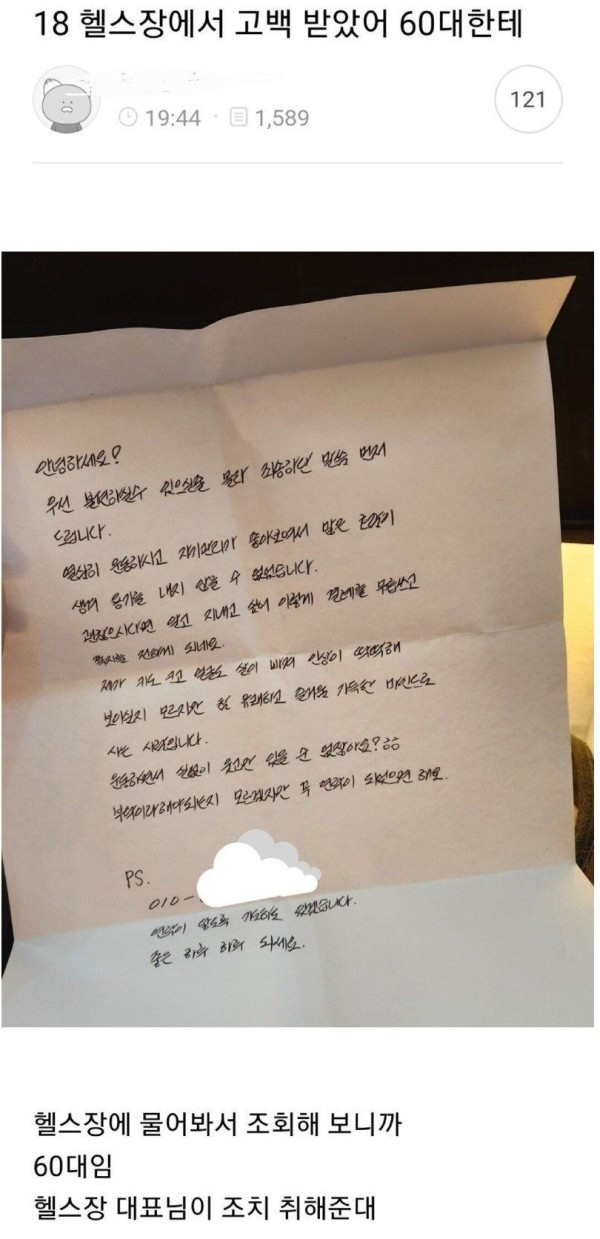 18 헬스장에서 고백 받았어 60대한테
19:44 · 1,589
121
안녕하세요?
우선 불편하실수 있으실줄 몰라 죄송하단 말씀 먼저
드립니다.
열심히 운동하시고 자기관리가 좋아보여서 많은
생겨 용기를 내지 않을 수 없었습니다.
괜찮으시다면 알고 지내고 싶어 이렇게 결례를 무릅쓰고
쪽지를 전하게 되네요.
제가 키도 크고 얼굴도 살이 빠져 인상이 딱딱해
보이실지 모르지만 참 유쾌하고 즐거움 가득한 마인드로
사는 사람입니다.
운동하면서 실없이 웃고만 있을 순 없잖아요? ㅎㅎ
부탁이라해야되는지 모르겠지만 꼭 연락이 되었으면 해요.
PS.
010-
연락이 않도록 기다려도 되겠습니다.
좋은 하루 하루 되세요.
헬스장에 물어봐서 조회해 보니까
60대임
헬스장 대표님이 조치 취해준대